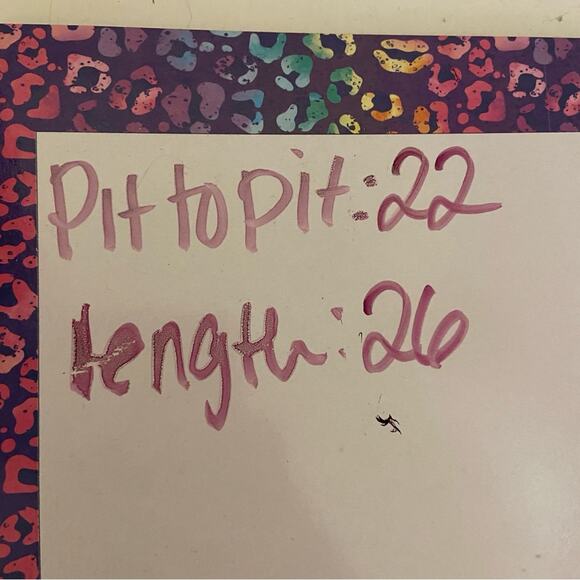 Pit to pit: 22
Length: 26